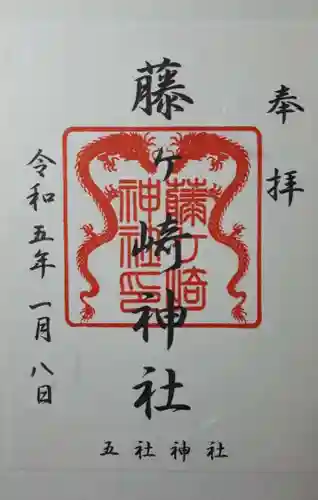 奉拝
藤ヶ崎神社
藤ヶ崎
神社印
令和五年一月八日
五社神社